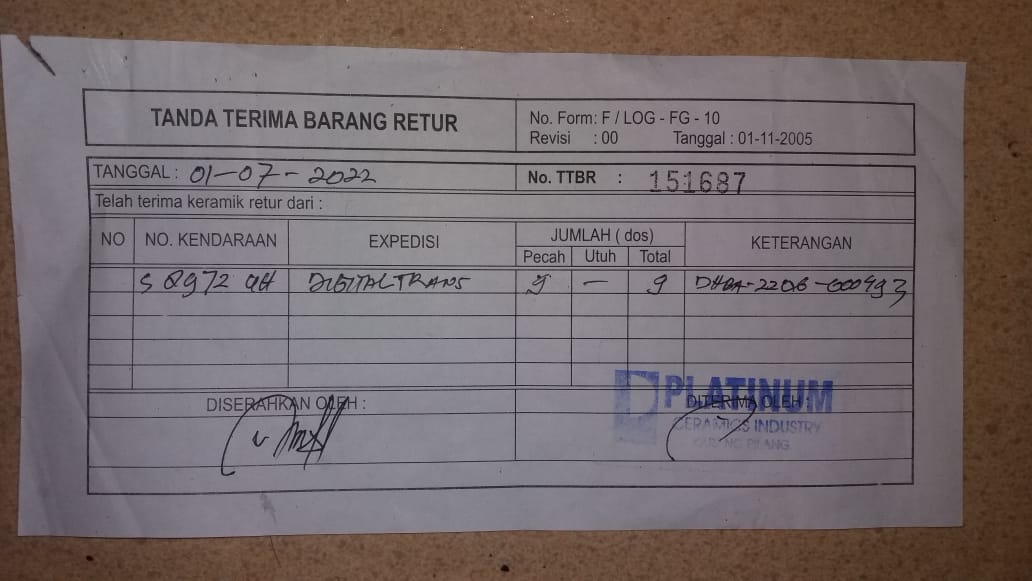 TANDA TERIMA BARANG RETUR
No. Form: F / LOG - FG - 10
Revisi : 00 Tanggal : 01-11-2005
TANGGAL : 01-07-2022
No. TTBR : 151687
Telah terima keramik retur dari :
NO NO. KENDARAAN EXPEDISI JUMLAH ( dos) KETERANGAN
Pecah Utuh Total
DIGITAL TRANS 9 — 9
DISERAHKAN OLEH :
DITERIMA OLEH :
PLATINUM
CERAMICS INDUSTRY
KARANG PILANG